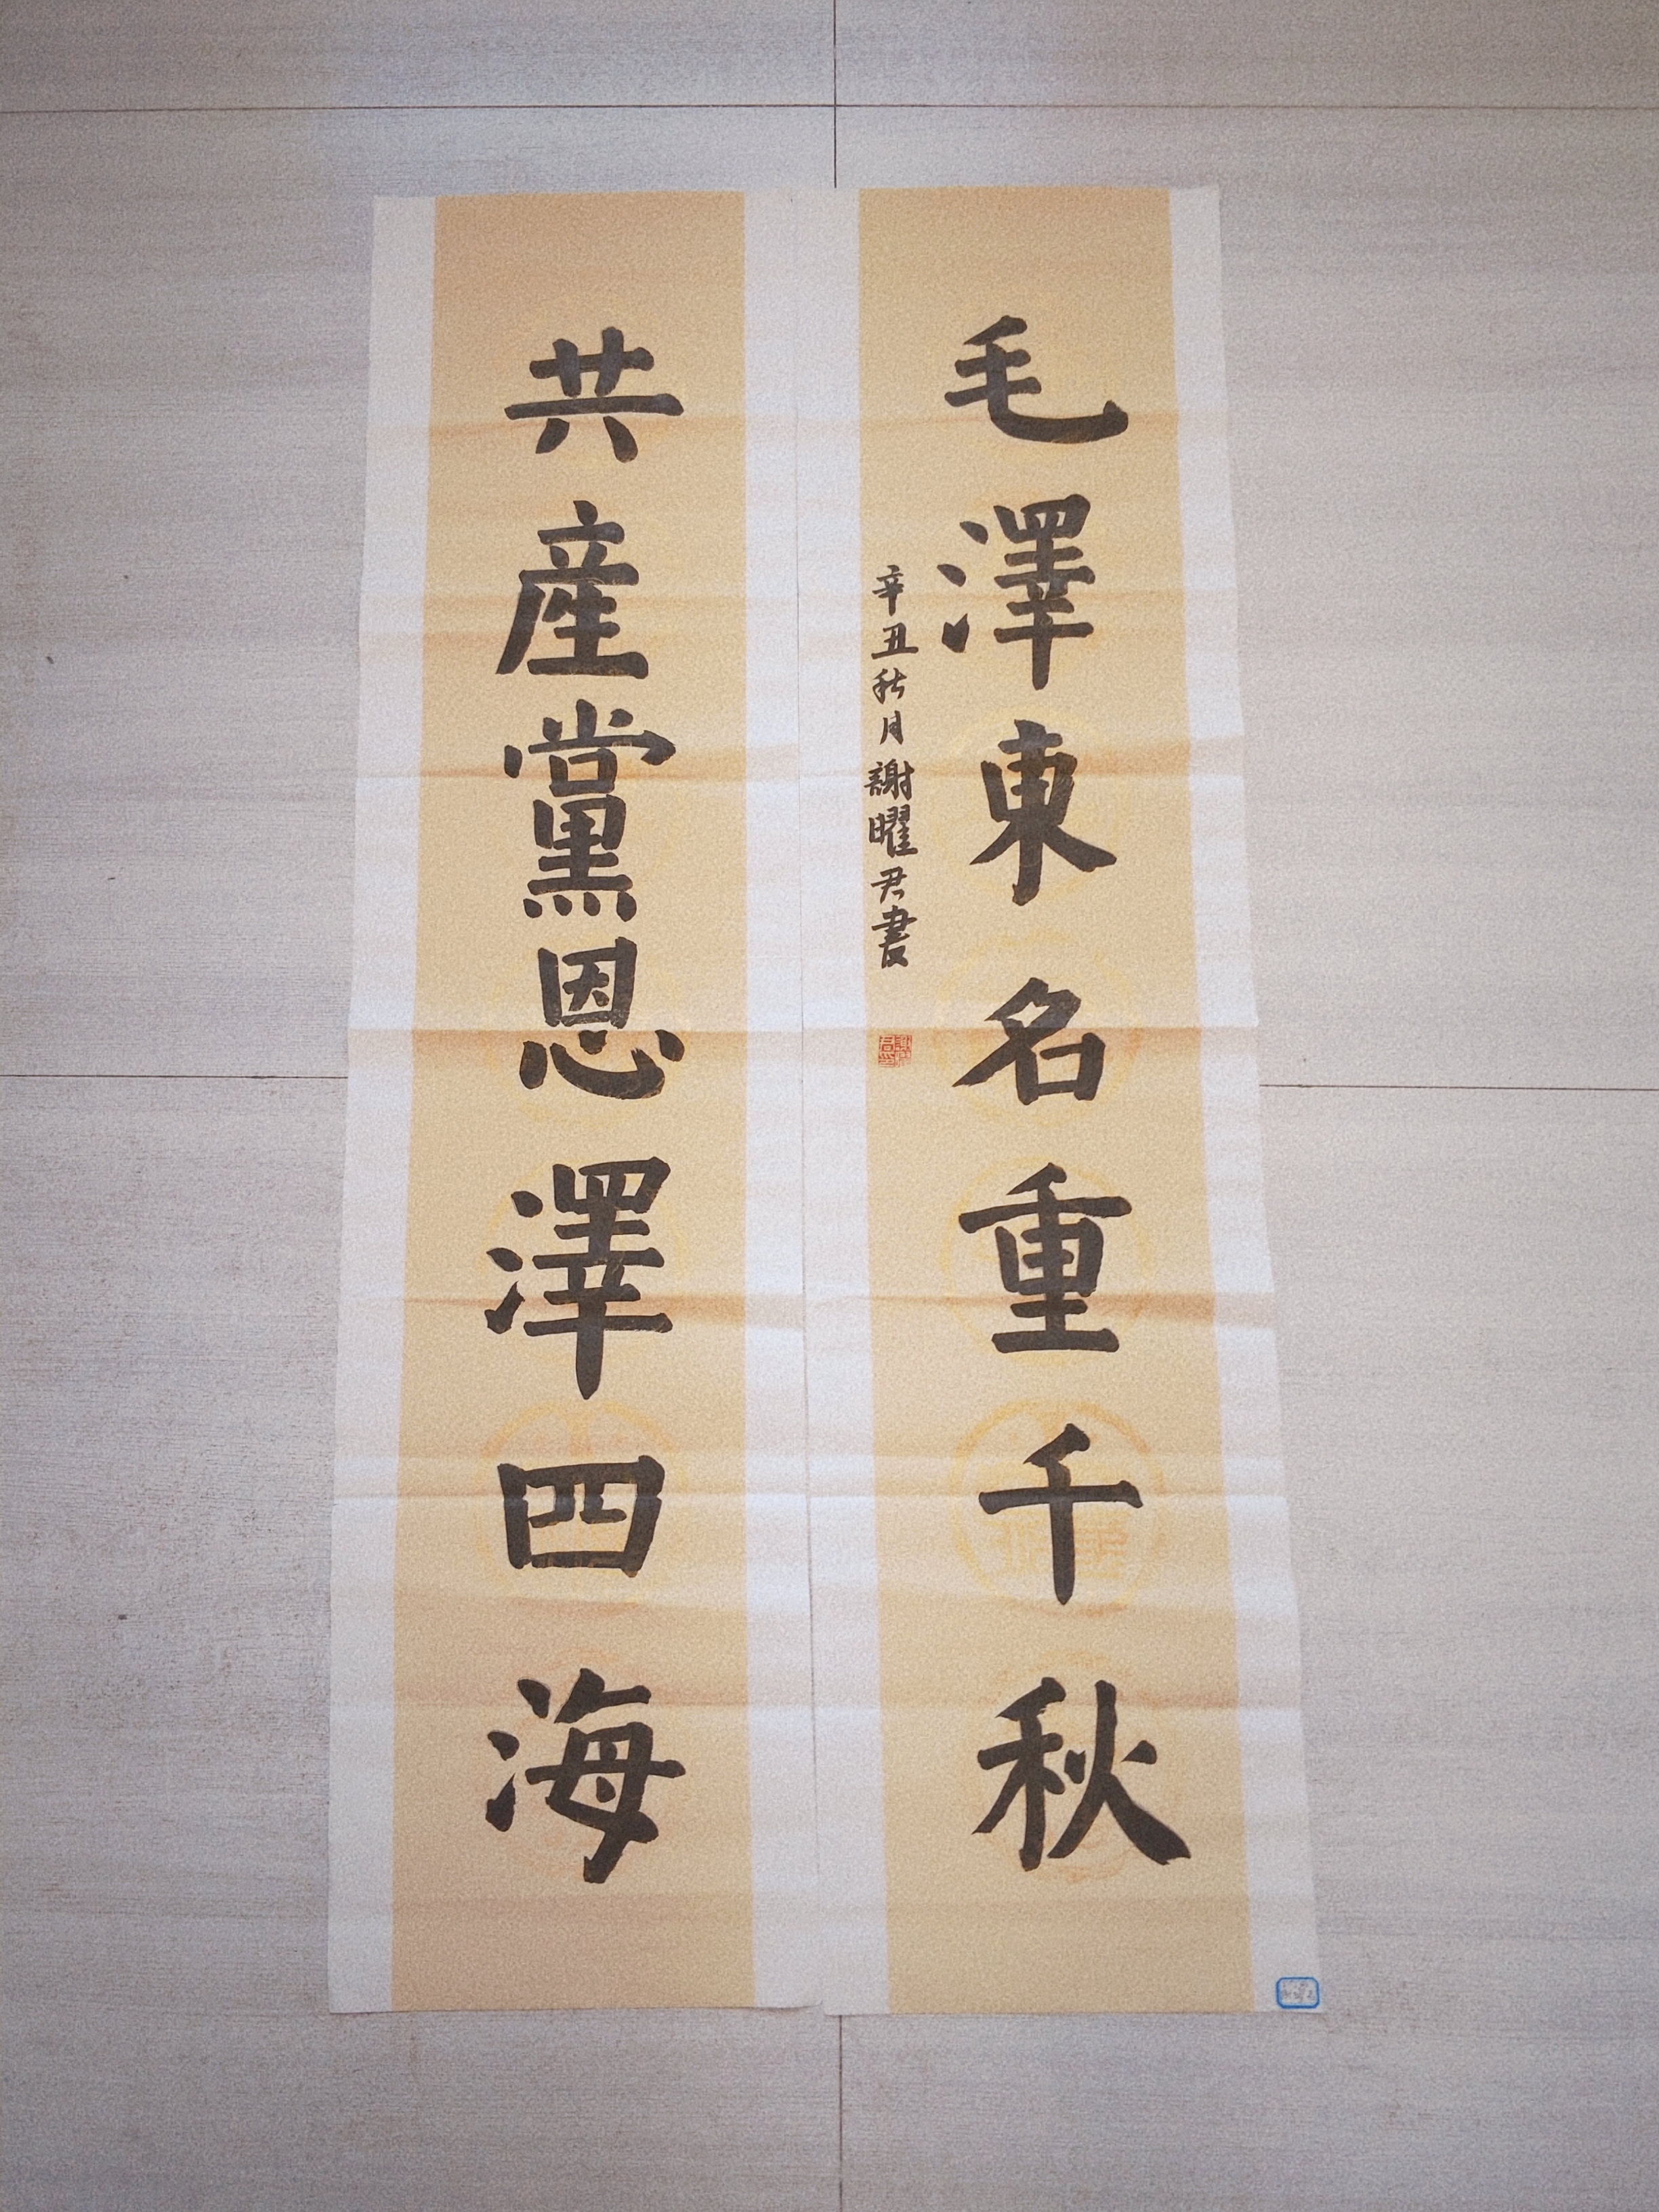 毛澤東名重千秋
辛丑秋月謝曜君書
共產黨恩澤四海